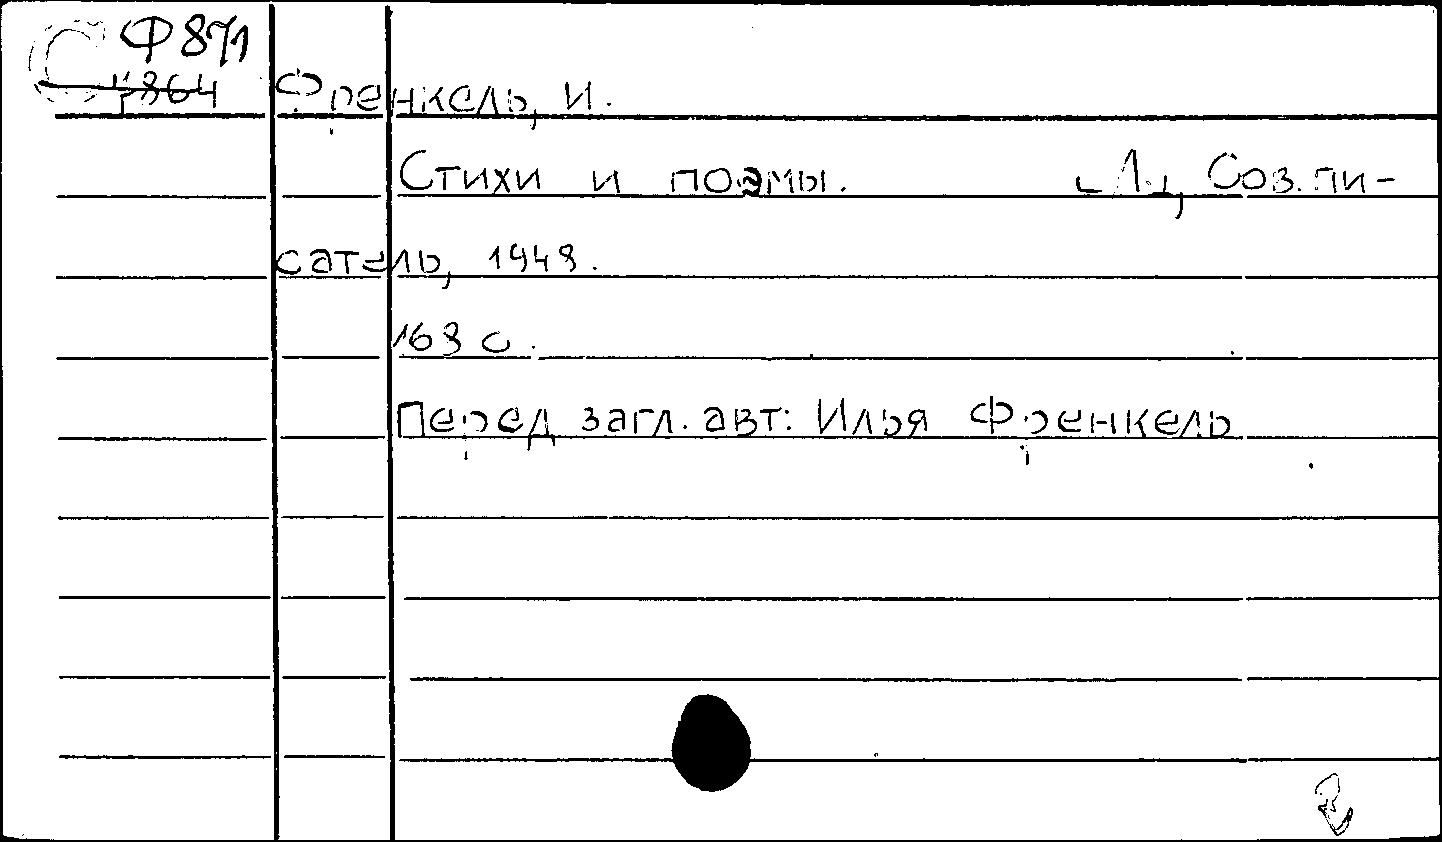 Ф871
Френкель, И.
Стихи и поэмы. [Л.], Сов. пи-
сатель, 1948.
168 с.
Перед загл. авт: Илья Френкель